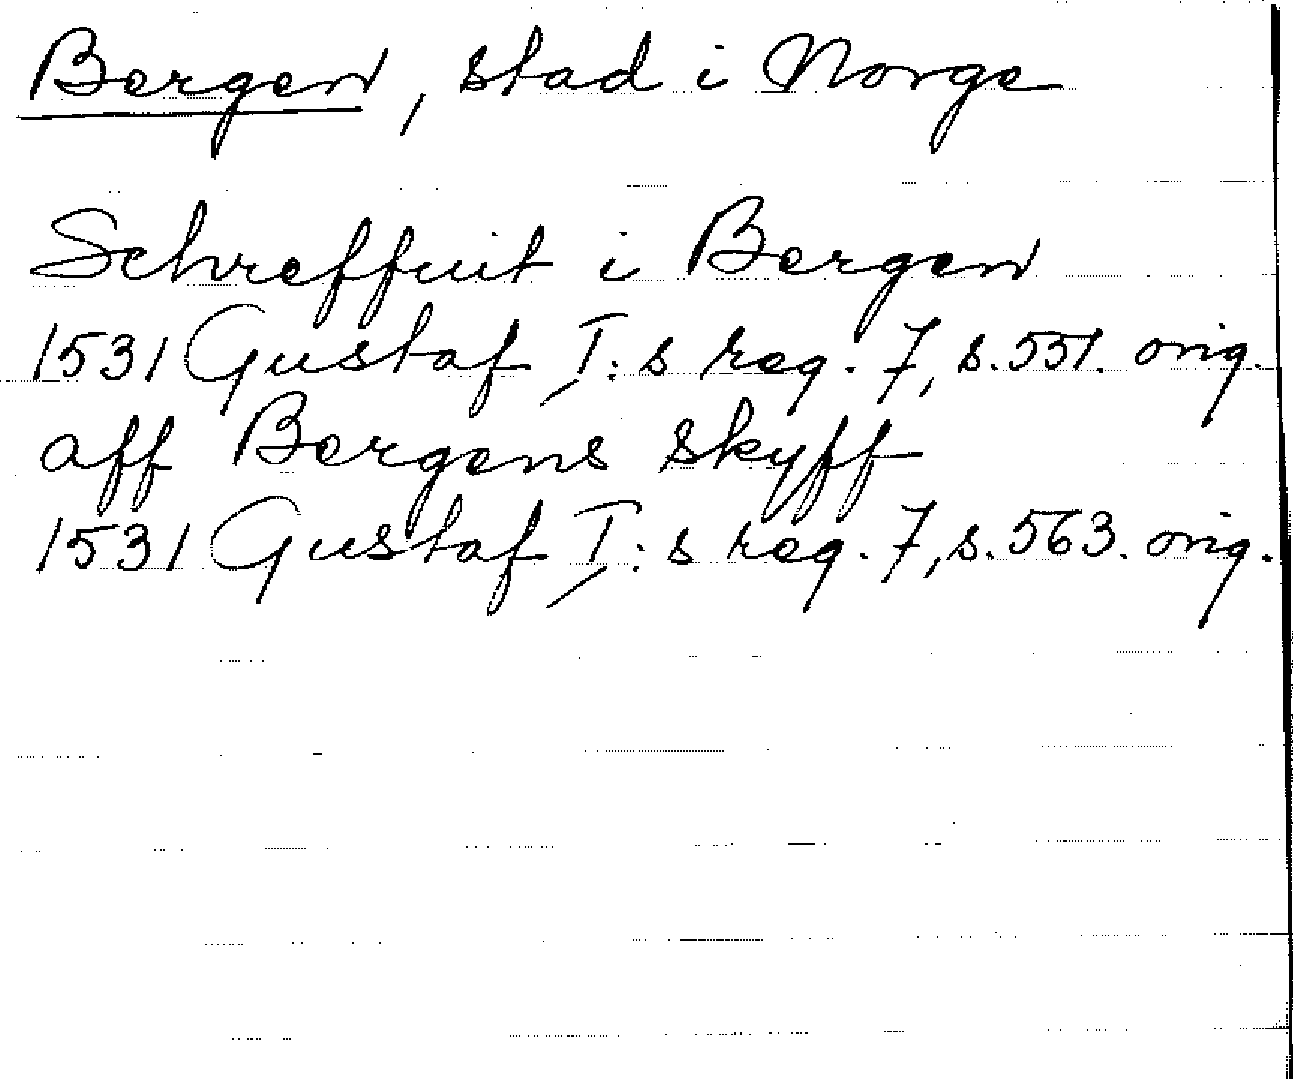 Bergen, stad i Norge
Schreffuit i Bergen
1531 Gustaf I:s reg. 7, s. 551. orig.
aff Bergens skyff
1531 Gustaf I:s reg. 7, s. 563. orig.